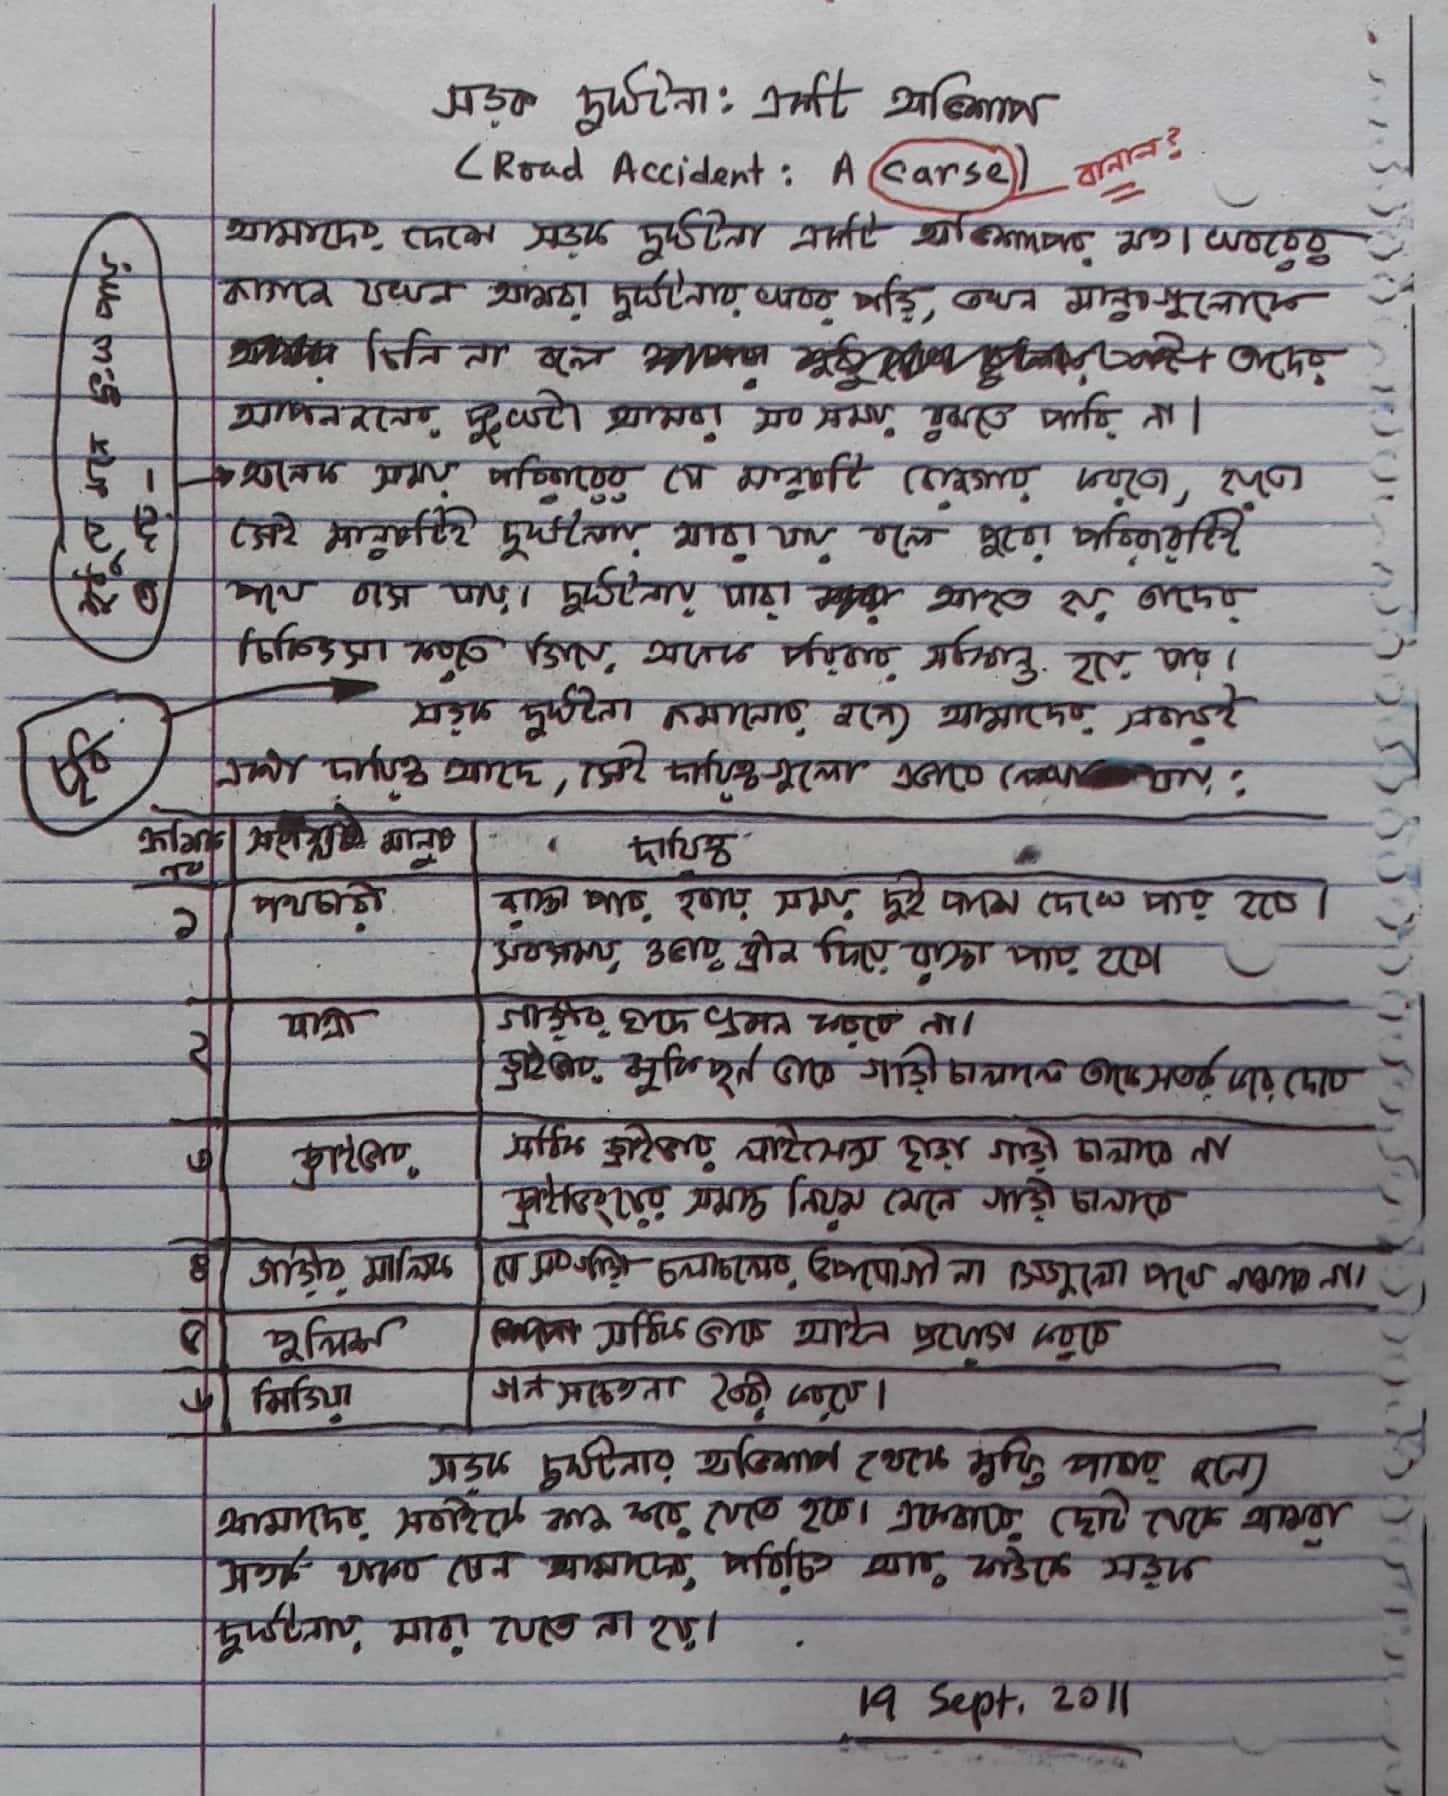 সড়ক দুর্ঘটনা: একটি অভিশাপ
(Road Accident: A Carse)
বানান?
আমাদের দেশে সড়ক দুর্ঘটনা একটি অভিশাপের মত। খবরের
কাগজে যখন আমরা দুর্ঘটনার খবর পড়ি, তখন মানুষগুলোকে
চিনি না বলে তাদের
আপনজনের দুঃখটা আমরা সব সময় বুঝতে পারি না।
অনেক সময় পরিবারের যে মানুষটি রোজগার করতো, হয়তো
সেই মানুষটিই দুর্ঘটনায় মারা যায় বলে পুরো পরিবারটিই
পথে বসে যায়। দুর্ঘটনায় যারা আহত হয় তাদের
চিকিৎসা করতে গিয়ে অনেক পরিবার সর্বস্বান্ত হয়ে যায়।
ছবি
সড়ক দুর্ঘটনা কমানোর জন্যে আমাদের সবারই
একটা দায়িত্ব আছে, সেই দায়িত্বগুলো এভাবে লেখা যায়:
ক্রমিক নং | সংশ্লিষ্ট মানুষ | দায়িত্ব
১ | পথচারী | রাস্তা পার হবার সময় দুই পাশে দেখে পার হবে।
সবসময় ওভার ব্রীজ দিয়ে রাস্তা পার হবে।
২ | যাত্রী | গাড়ীর ছাদে ভ্রমন করবে না।
ড্রাইভার ঝুকিপূর্ন ভাবে গাড়ী চালালে তাকে সতর্ক করে দেবে
৩ | ড্রাইভার | সঠিক ড্রাইভার লাইসেন্স ছাড়া গাড়ী চালাবে না
ড্রাইভিংয়ের সমস্ত নিয়ম মেনে গাড়ী চালাবে
৪ | গাড়ীর মালিক | যে সব গাড়ী চলাচলের উপযোগী না সেগুলো পথে নামাবে না।
৫ | পুলিশ | সঠিক ভাবে আইন প্রয়োগ করবে
৬ | মিডিয়া | গন সচেতনা তৈরী করবে।
সড়ক দুর্ঘটনার অভিশাপ থেকে মুক্তি পাবার জন্যে
আমাদের সবাইকে কাজ করে যেতে হবে। একেবারে ছোট থেকে আমরা
সতর্ক থাকব যেন আমাদের পরিচিত আর কাউকে সড়ক
দুর্ঘটনায় মারা যেতে না হয়।
19 Sept. 2011